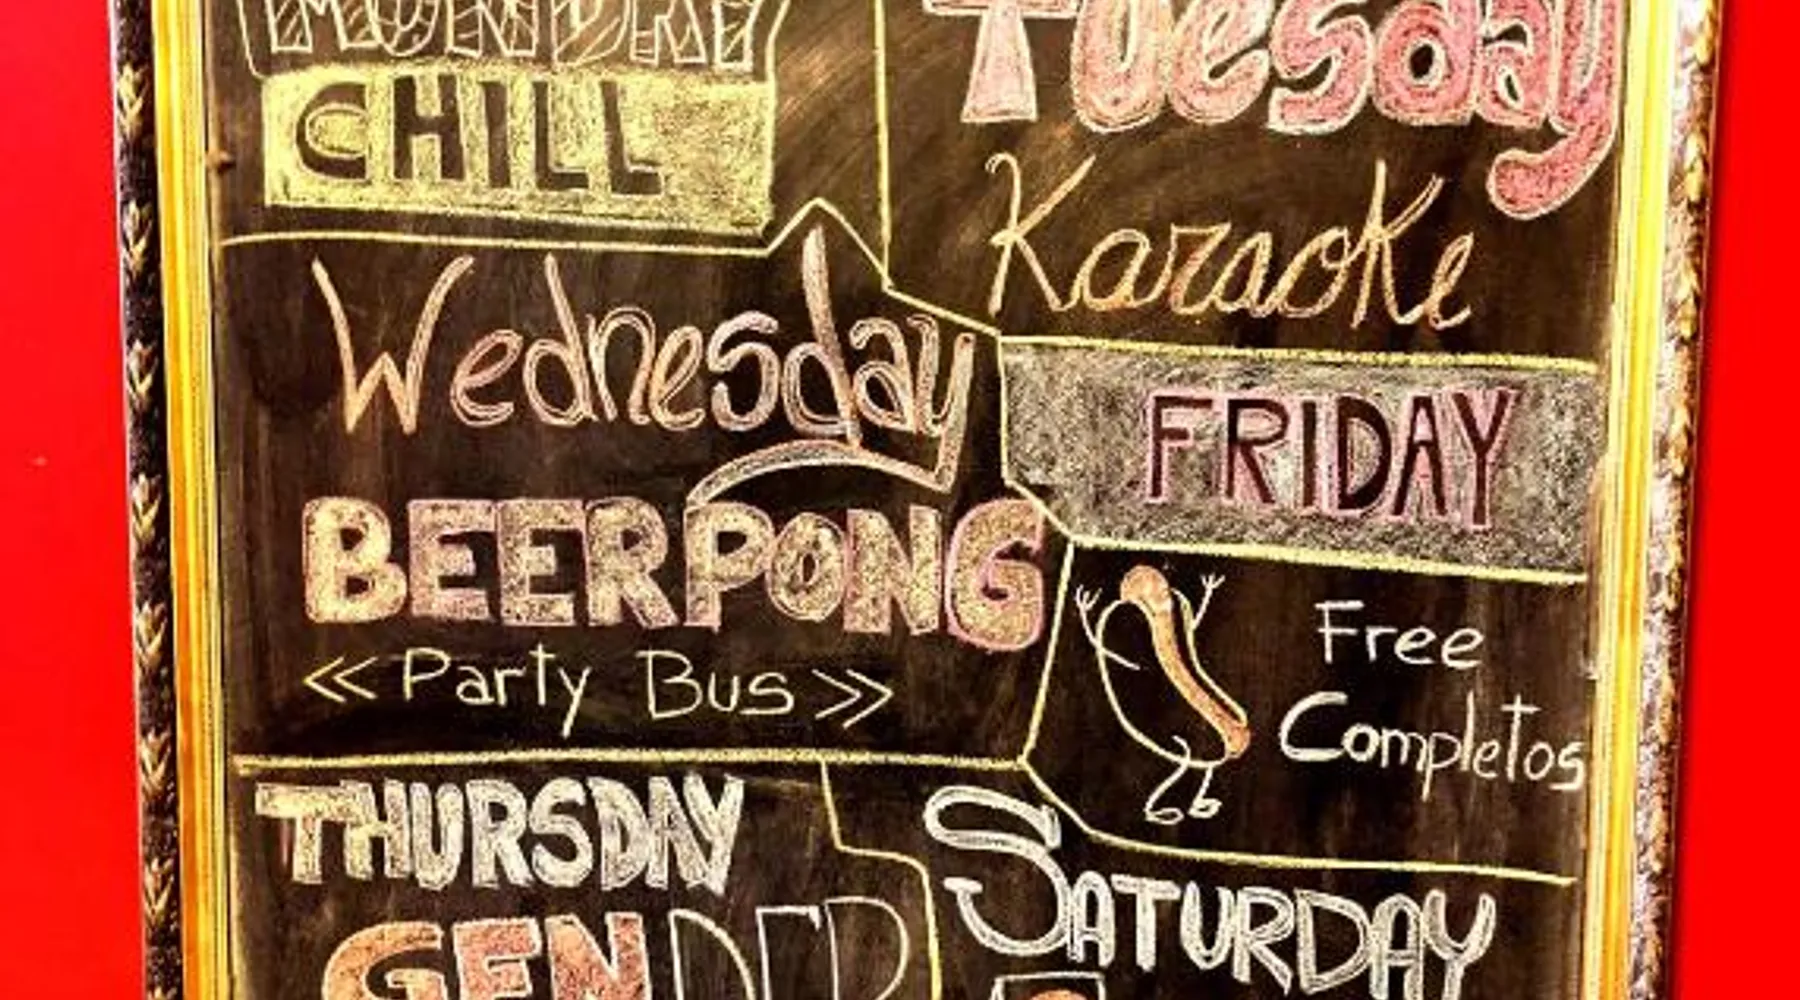 MONDAY
CHILL
Tuesday
Karaoke
Wednesday
BEERPONG
<< Party Bus >>
FRIDAY
Free
Completos
THURSDAY
GENDER
SATURDAY